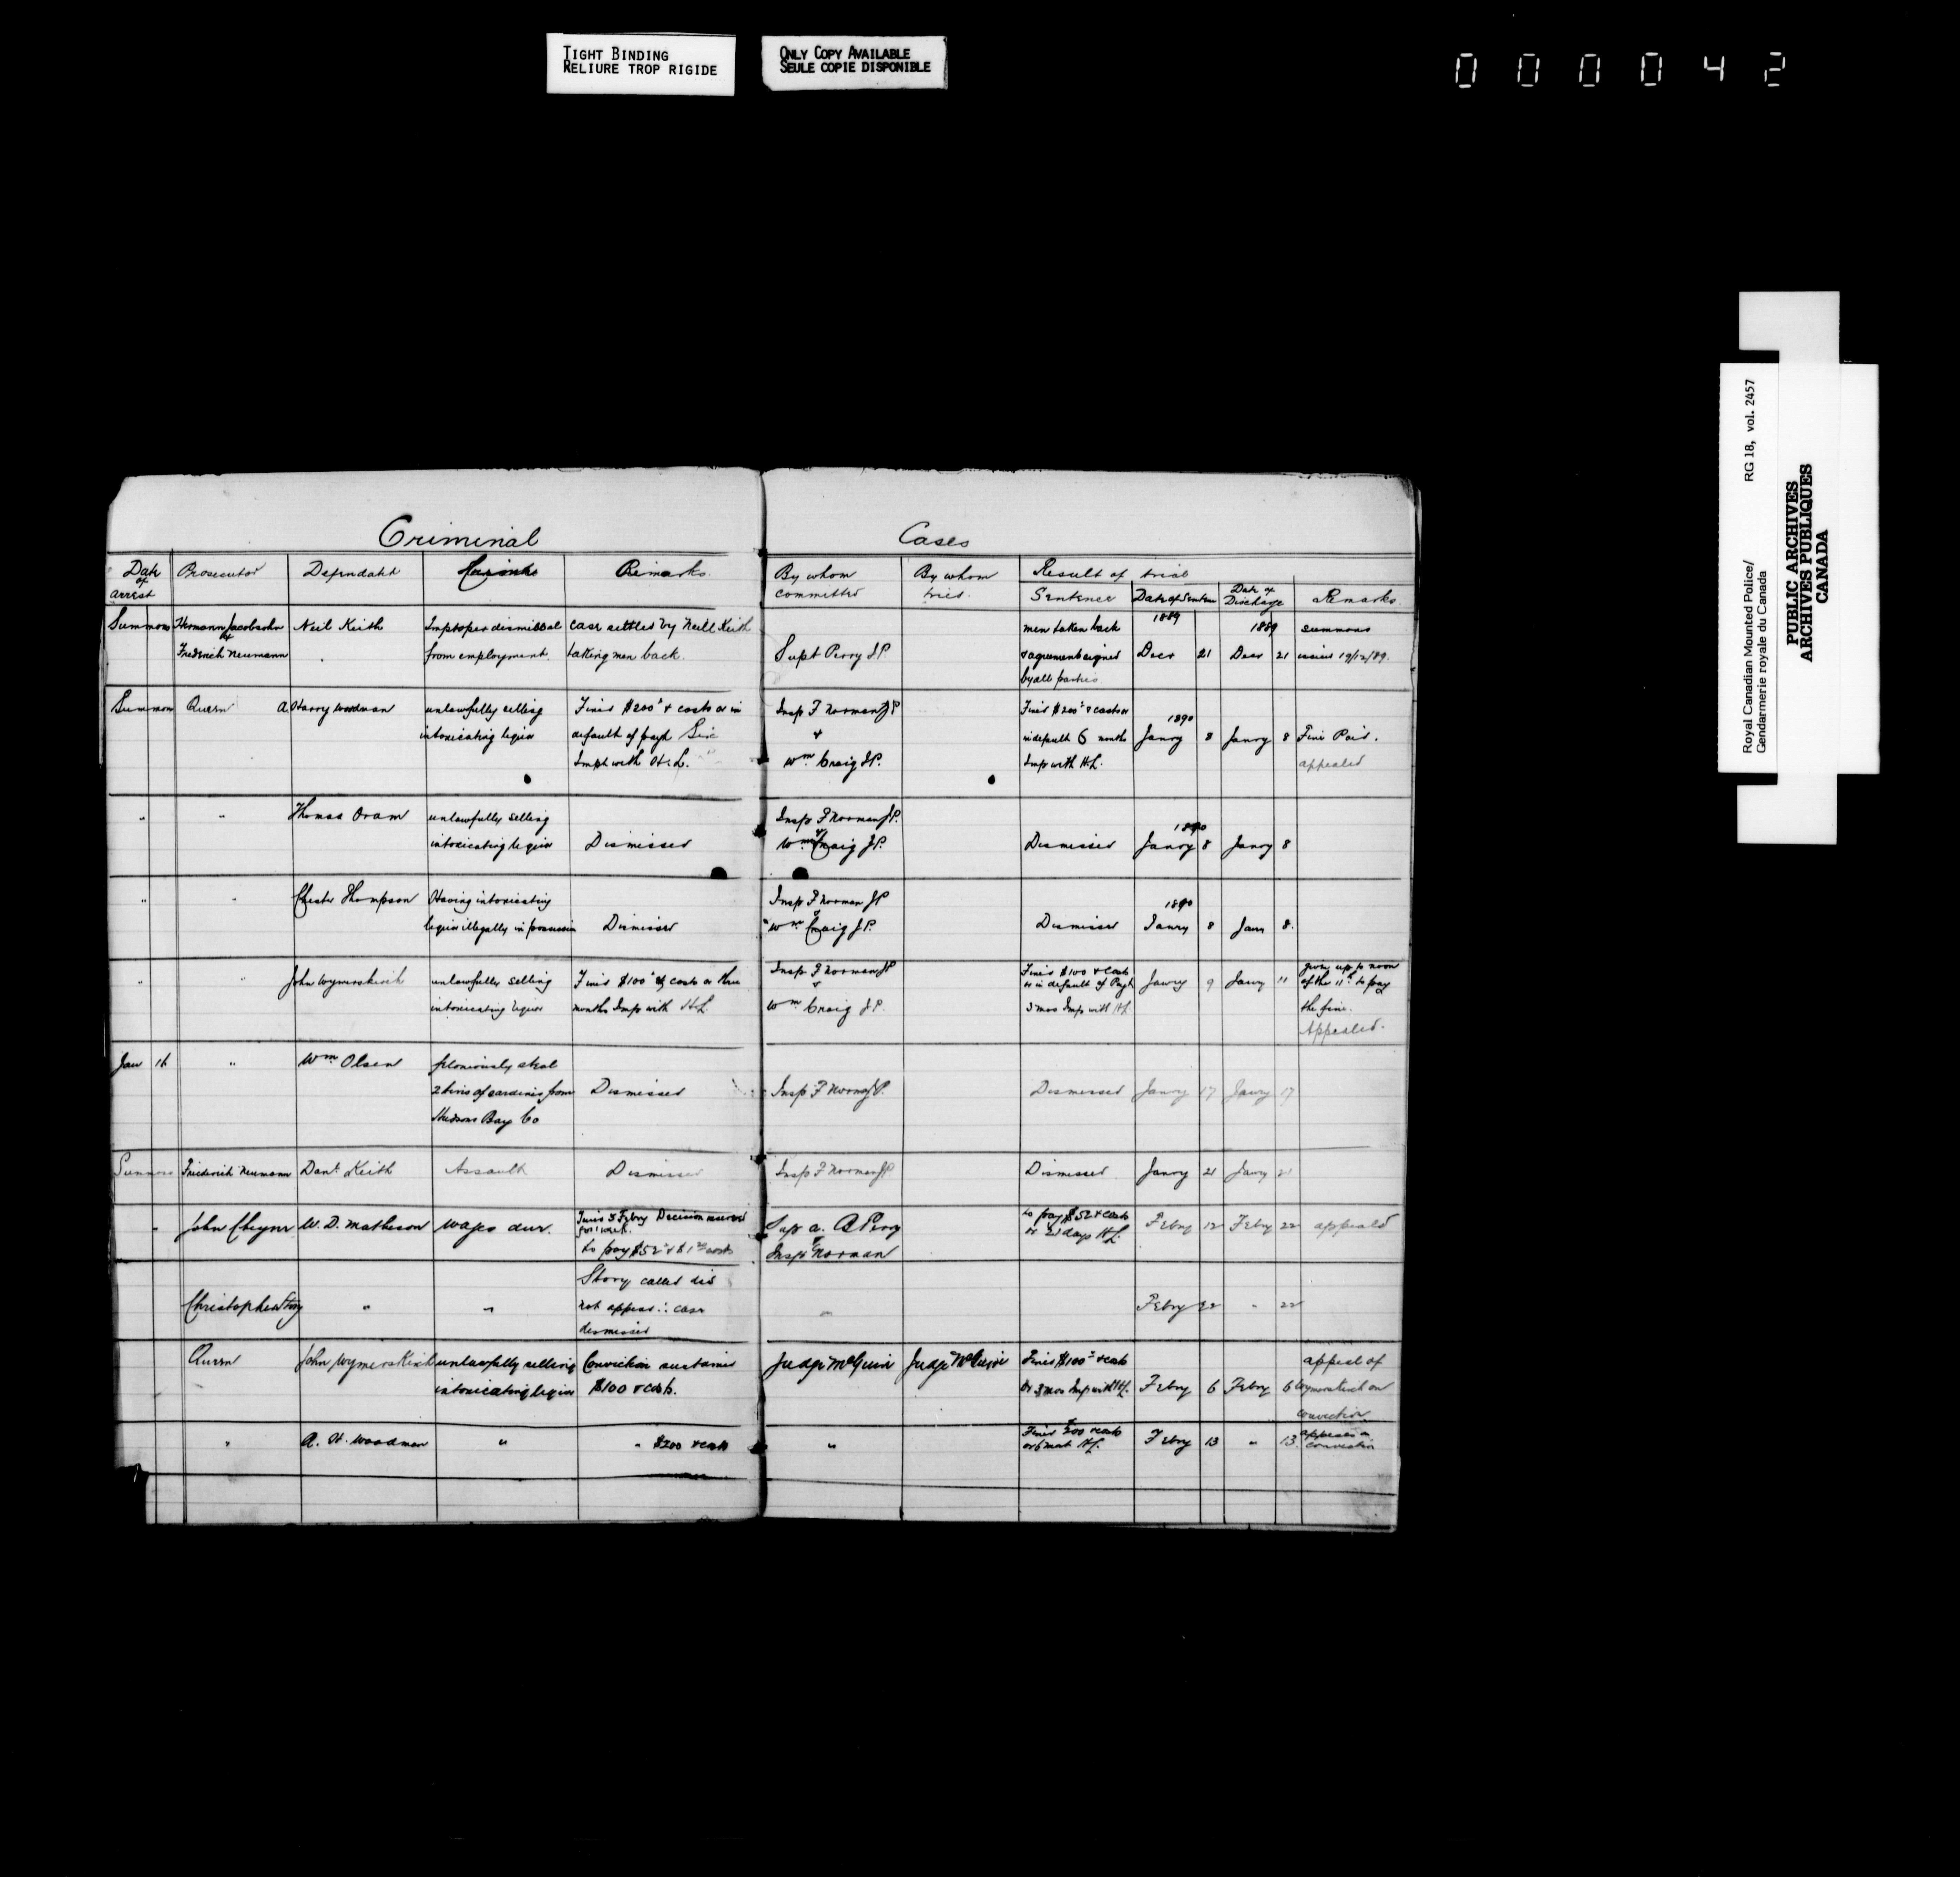 TIGHT BINDING
RELIURE TROP RIGIDE
ONLY COPY AVAILABLE
SEULE COPIE DISPONIBLE
000042
Royal Canadian Mounted Police/ RG 18, vol. 2457
Gendarmerie royale du Canada
PUBLIC ARCHIVES
ARCHIVES PUBLIQUES
CANADA
Criminal Cases
Date of arrest
Prosecutor
Defendant
Remarks
By whom committed
By whom tried
Result of trial
Sentence
Date of Sentence
Date of Discharge
Remarks
Summons Hermann Jacobsohn & Neil Keith Improper dismissal case settled by Neill Keith men taken back 1889 1889 summons
Fredrich Neumann from employment. taking men back. Supt Perry J.P. & agreement signed Decr 21 Decr 21 issued 19/12/89.
by all parties
Summons Queen A. Harry Woodman unlawfully selling Fined $200 & costs or in Insp F Norman JP Fined $200 & costs or 1890
intoxicating liquor default of payt Six & in default 6 months Janry 8 Janry 8 Fine Paid.
Impt with H.L. Wm Craig JP. Imp with HL. appealed
" " Thomas Oram unlawfully selling Insp F Norman JP. 1890
intoxicating liquor Dismissed & Wm Craig JP. Dismissed Janry 8 Janry 8
" " Chester Thompson Having intoxicating Insp F Norman JP 1890
liquor illegally in possession Dismissed & Wm Craig JP. Dismissed Janry 8 Janr 8.
" " John Wymerskirch unlawfully selling Fined $100 & costs or three Insp F Norman JP Fined $100 & costs Janry 9 Janry 11 given up to noon
intoxicating liquor months Imp with H.L. & Wm Craig JP. or in default of Payt of the 11th to pay
3 mos Imp with HL the fine.
Appealed.
Jan 16 " Wm Olsen feloniously steal
2 tins of sardines from Dismissed Insp F Norman JP. Dismissed Janry 17 Janry 17
Hudsons Bay Co
Summons Friederich Neumann Danl Keith Assault Dismissed Insp F Norman JP Dismissed Janry 21 Janry 21
" John Cheyne W. D. Matheson wages due. Febry Decision reserved Sup A. B Perry to pay $52 & costs Febry 12 Febry 22 appeald
for 1 week & or 21 days HL.
to pay $52 & $1 costs Insp Norman
Christopher Story " " Story called did
not appear ∴ case " Febry 22 " 22
dismissed
Queen John Wymerskirch unlawfully selling Conviction sustained Judge McGuire Judge McGuire Fined $100 & costs appeal of
intoxicating liquor $100 & costs. or 3 mos Imp with HL. Febry 6 Febry 6 Wymerskirch on
conviction
" A. H. Woodman " " $200 & costs " Fined 200 & costs Febry 13 " 13